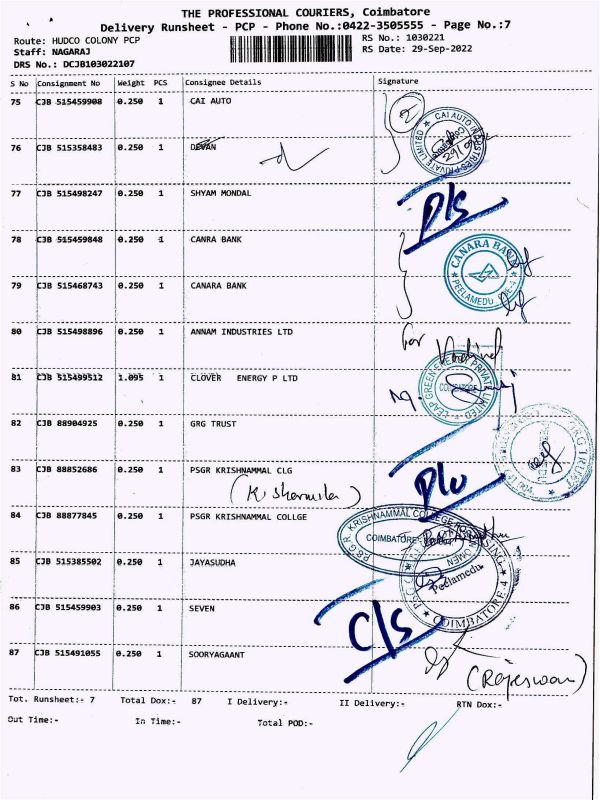 THE PROFESSIONAL COURIERS, Coimbatore
Delivery Runsheet - PCP - Phone No.:0422-3505555 - Page No.:7
Route: HUDCO COLONY PCP
RS No.: 1030221
Staff: NAGARAJ
RS Date: 29-Sep-2022
DRS No.: DCJB103022107
S No Consignment No Weight PCS Consignee Details Signature
75 CJB 515459908 0.250 1 CAI AUTO
76 CJB 515358483 0.250 1 DEVAN
77 CJB 515498247 0.250 1 SHYAM MONDAL
D/S
78 CJB 515459848 0.250 1 CANRA BANK
CANARA BANK
PEELAMEDU
79 CJB 515468743 0.250 1 CANARA BANK
80 CJB 515498896 0.250 1 ANNAM INDUSTRIES LTD
for
81 CJB 515499512 1.095 1 CLOVER ENERGY P LTD
LEAP GREEN ENERGY PRIVATE LIMITED
COIMBATORE
82 CJB 88904925 0.250 1 GRG TRUST
GRG TRUST
83 CJB 88852686 0.250 1 PSGR KRISHNAMMAL CLG
(K. Sharmila)
84 CJB 88877845 0.250 1 PSGR KRISHNAMMAL COLLGE
COIMBATORE
85 CJB 515385502 0.250 1 JAYASUDHA
Peelamedu
COIMBATORE 4
86 CJB 515459903 0.250 1 SEVEN
C/S
87 CJB 515491055 0.250 1 SOORYAGAANT
(Rajeswari)
Tot. Runsheet:- 7 Total Dox:- 87 I Delivery:- II Delivery:- RTN Dox:-
Out Time:- In Time:- Total POD:-